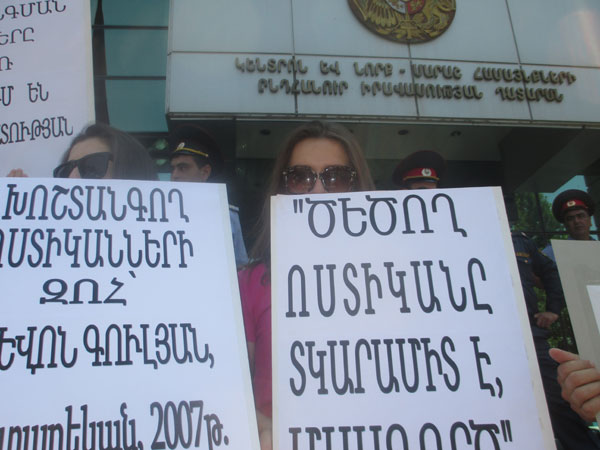 ԳՄԱՆ
ԵՐԸ
Ռ
Մ ԵՆ
ՏՈՒԹՅԱՆ
ԿԵՆՏՐՈՆ ԵՎ ՆՈՐՔ - ՄԱՐԱՇ ՀԱՄԱՅՆՔՆԵՐԻ
ԸՆԴՀԱՆՈՒՐ ԻՐԱՎԱՍՈՒԹՅԱՆ ԴԱՏԱՐԱՆ
ԽՈՇՏԱՆԳՈՂ
ՈՍՏԻԿԱՆՆԵՐԻ
ԶՈՀ՝
ԵՎՈՆ ԳՈՒԼՅԱՆ,
2007թ.
"ԾԵԾՈՂ
ՈՍՏԻԿԱՆԸ
ՏԿԱՐԱՄԻՏ Է,